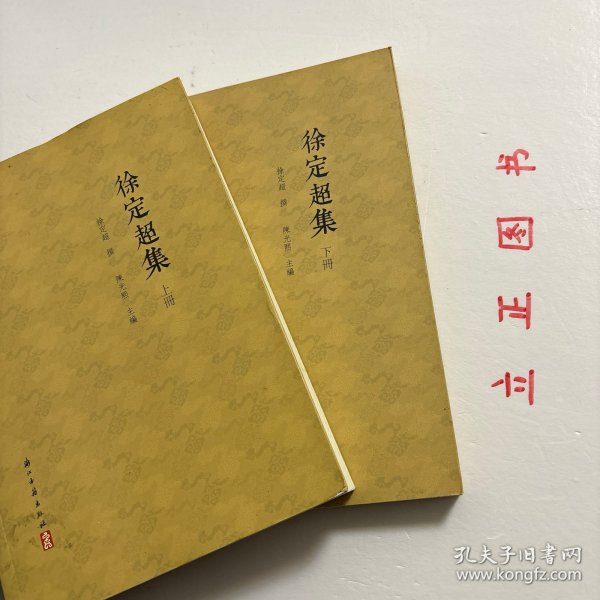 徐定超集 上冊
徐定超 撰 陳光熙 主編
浙江古籍出版社
徐定超集 下冊
徐定超 撰 陳光熙 主編
立正图书
孔夫子旧书网
www.kongfz.com